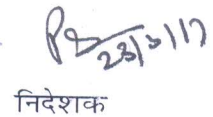 23/3/17
निदेशक